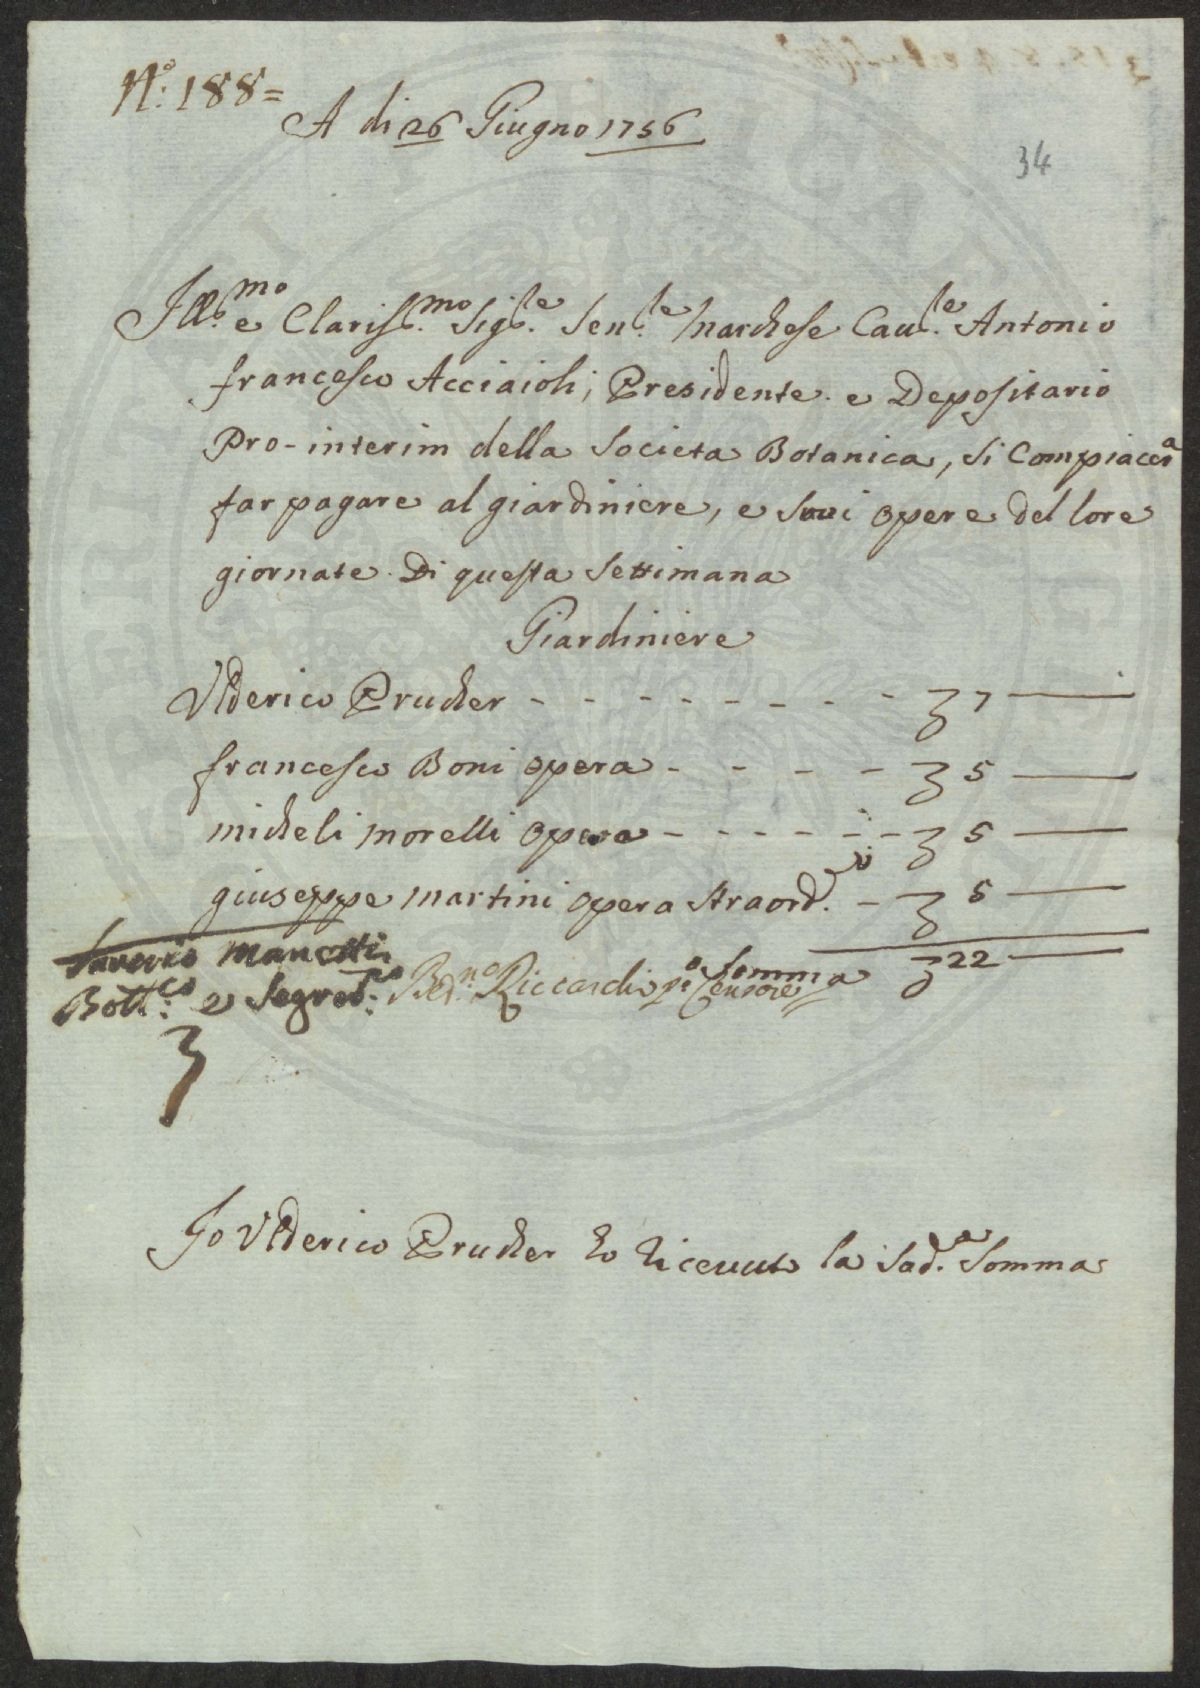 N.o: 188=
A di 26 Giugno 1756
34
Ill.mo e Clariss.mo Sig.re Sen.re Marchese Cau.re Antonio
francesco Acciaioli, Presidente e Depositario
Pro-interim della Societa Botanica, Si Compiacerà
far pagare al giardiniere, e Suoi opere del lore
giornate Di questa Settimana
Giardiniere
Vlderico Prucher - - - - - - - 7 —
francesco Boni opera - - - - 5 —
micheli morelli opera - - - - - - 5 —
giuseppe martini opera Straord. - 5 —
Somma 22 —
Saverio Manetti
Bott.co e Segret.o:
Bed.no Riccardi p.o Censore
Io Vlderico Prucher ho riceuuto la Sad.a Somma